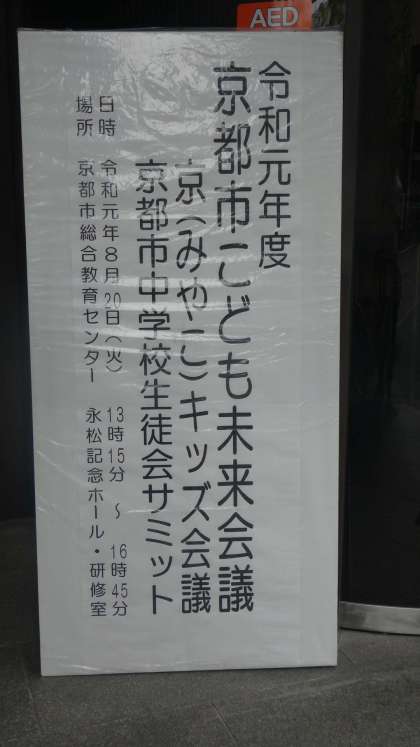 AED
令和元年度
京都市こども未来会議
京(みやこ)キッズ会議
京都市中学校生徒会サミット
日時 令和元年8月20日(火) 13時15分 ～ 16時45分
場所 京都市総合教育センター 永松記念ホール・研修室